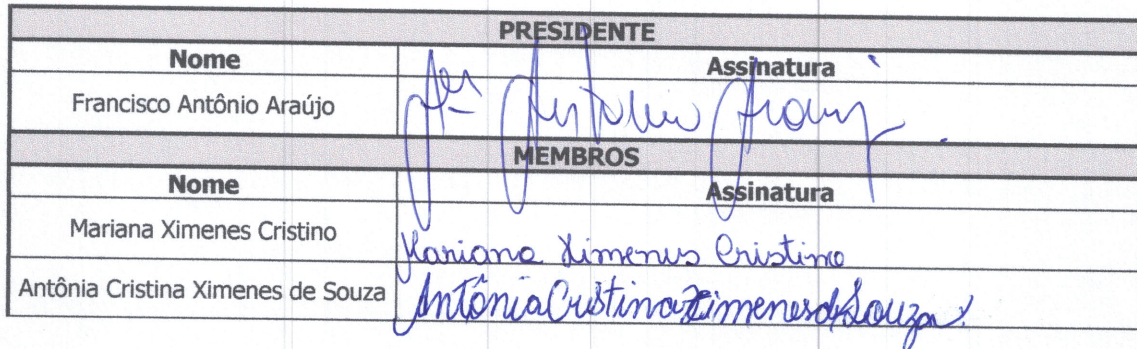 PRESIDENTE
Nome Assinatura
Francisco Antônio Araújo Fco Antônio Araujo
MEMBROS
Nome Assinatura
Mariana Ximenes Cristino Mariana Ximenes Cristino
Antônia Cristina Ximenes de Souza Antônia Cristina Ximenes de Souza